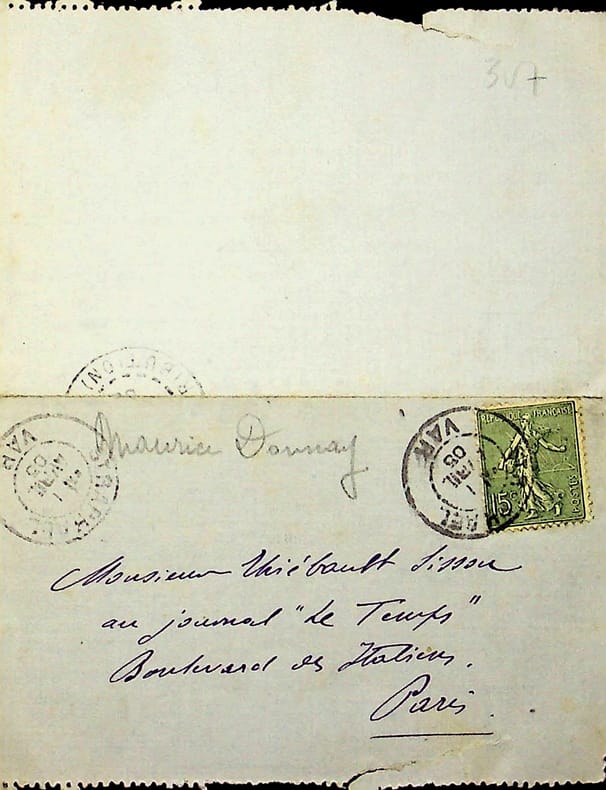 307
RIBUTION
Maurice Donnay
RÉPUBLIQUE FRANÇAISE
15c
POSTES
VAR
AVRIL
05
RAPHAEL
VAR
Monsieur Thiébault Sisson
au journal "Le Temps"
Boulevard des Italiens.
Paris.